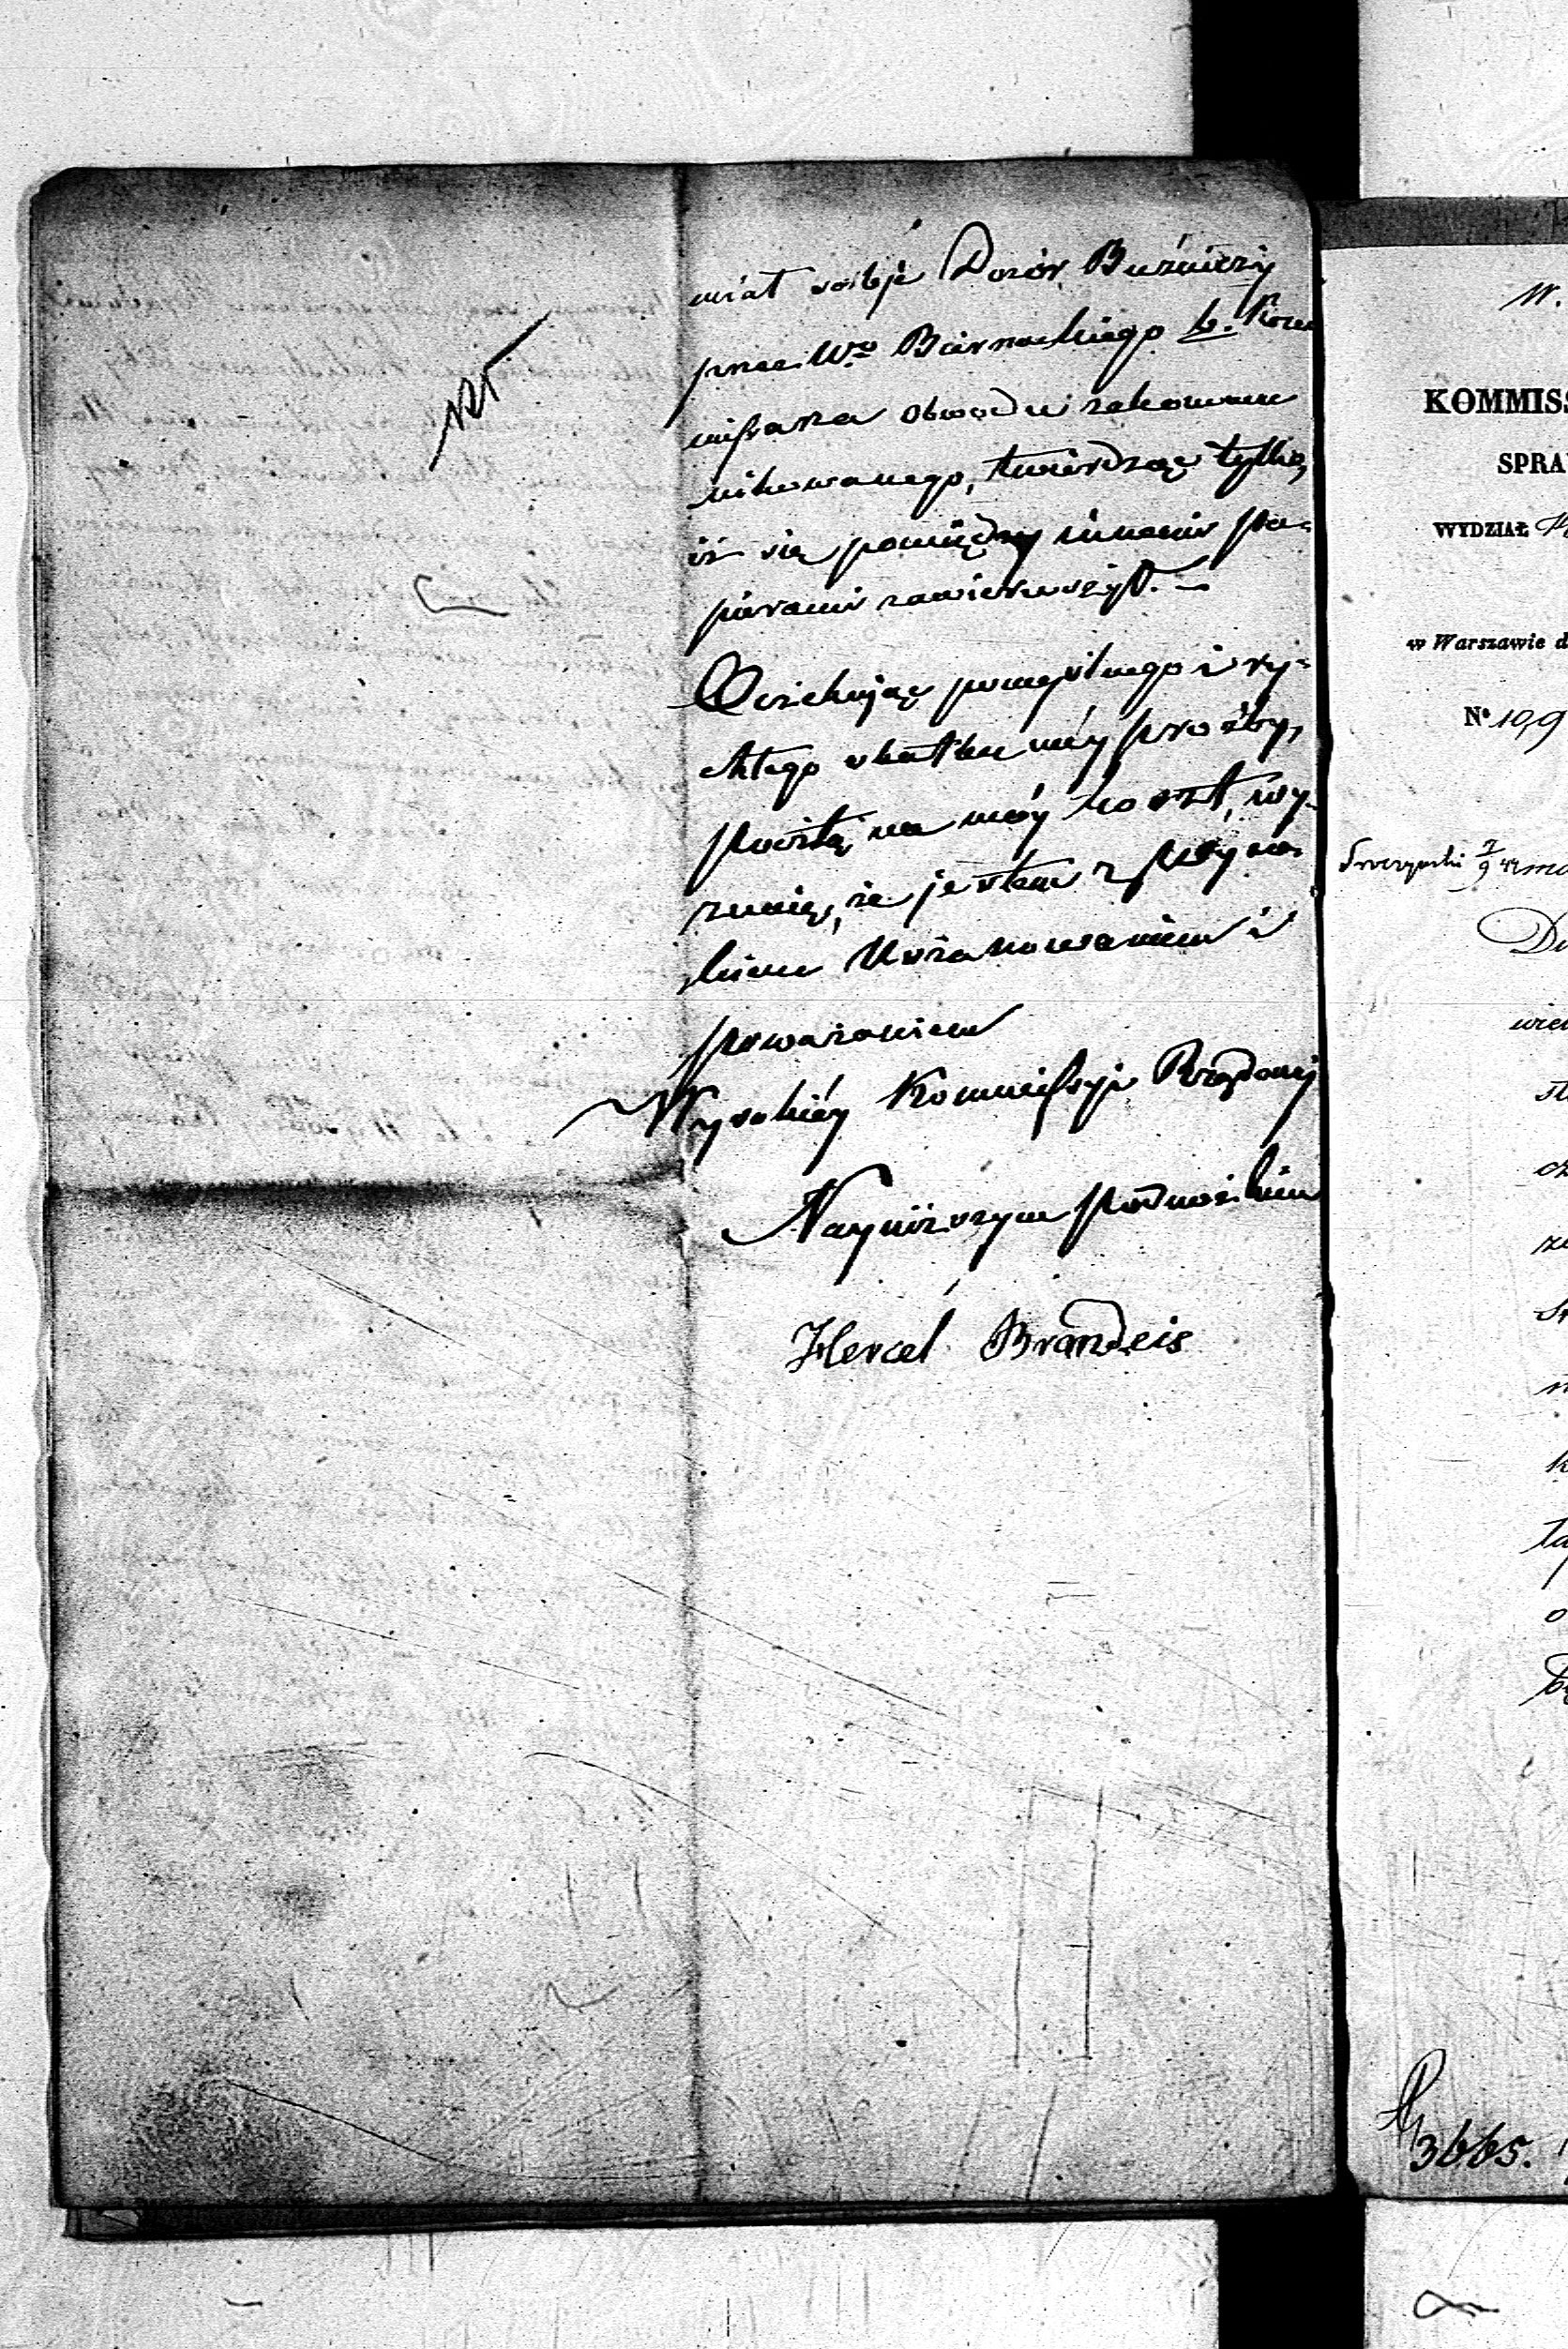 miał sobie Dozór Bużniczy
przez Wo. Biernackiego b. Kom
missarza obwodu zakommu
nikowanego, twierdząc tylko,
iż się pomiędzy innemi pa-
pierami zawieruszył. —
Oczekując pomyślnego i ry-
chłego skutku méy prośby,
pocztą na móy koszt, wy-
znaię, że jestem z
Uszanowaniem i
poważaniem
Wysokiéy Kommissyi Rządowéj
Nayniższym podnóżkiem
Hercel Brandeis
W.
KOMMISS
SPRA
WYDZIAŁ
w Warszawie d
No 10,9
Du
wier
st
ch
k
ta
o
3665.